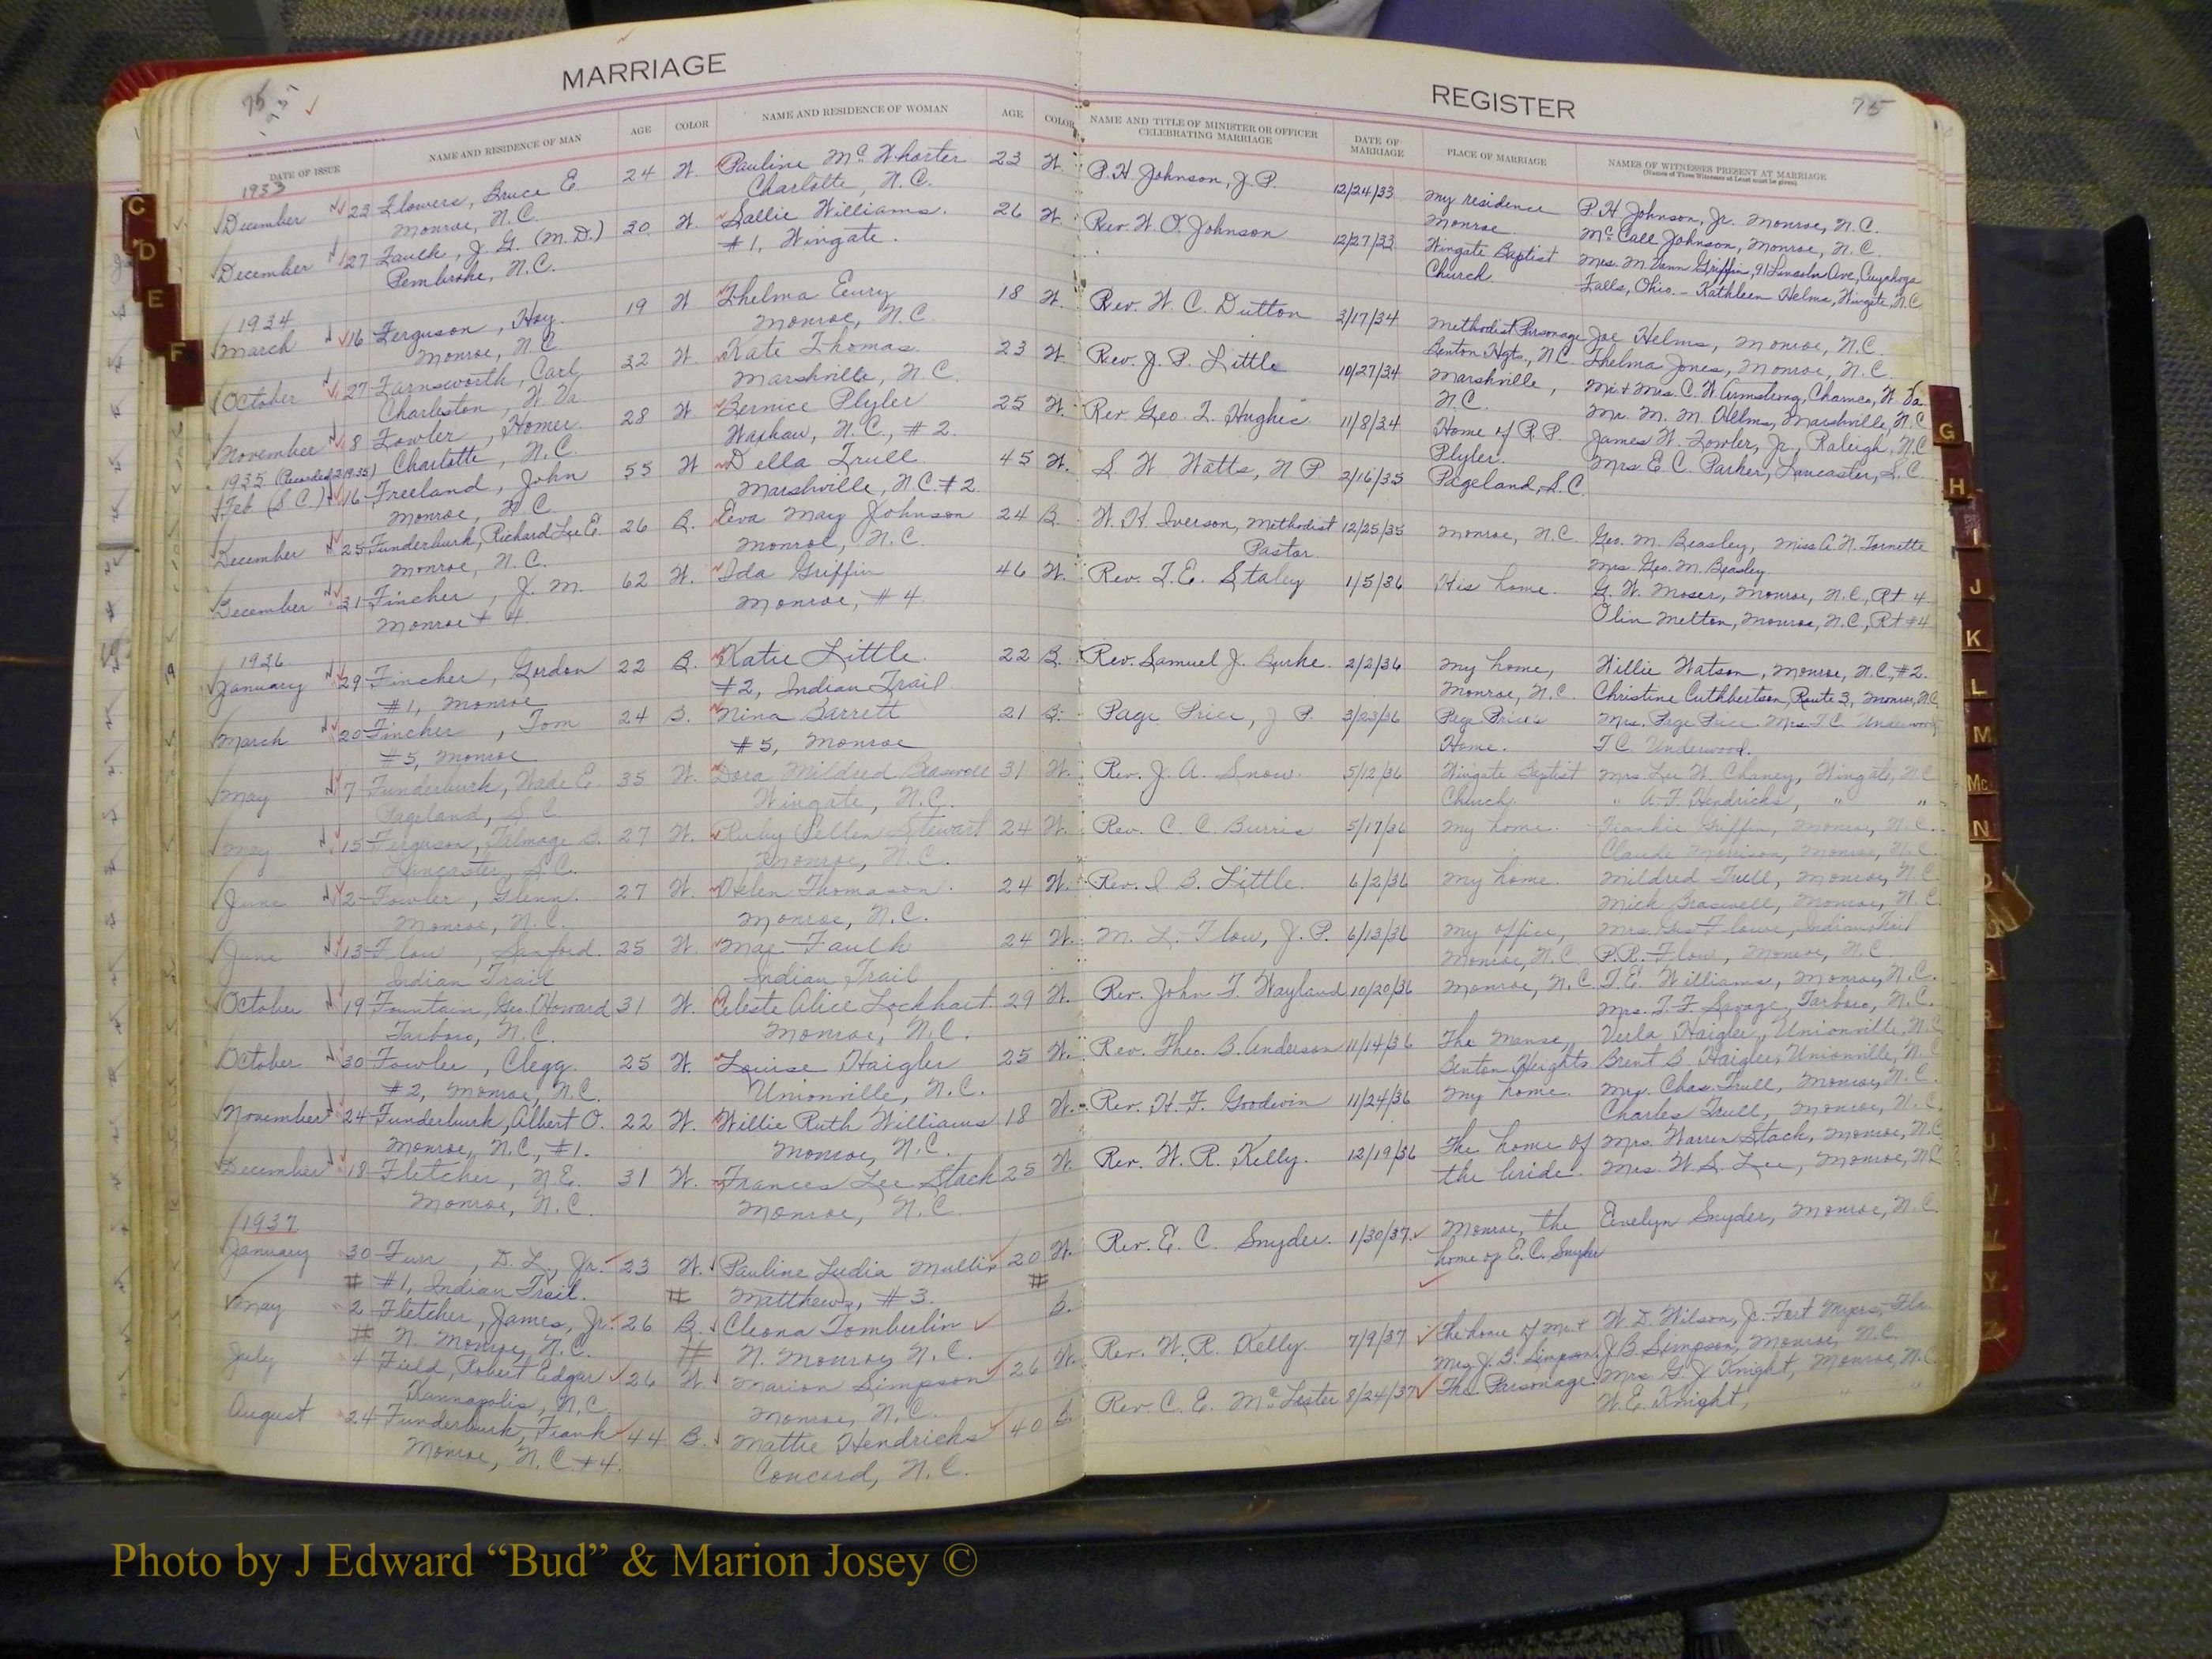 MARRIAGE REGISTER
75 75
1937
DATE OF ISSUE NAME AND RESIDENCE OF MAN AGE COLOR NAME AND RESIDENCE OF WOMAN AGE COLOR NAME AND TITLE OF MINISTER OR OFFICER CELEBRATING MARRIAGE DATE OF MARRIAGE PLACE OF MARRIAGE NAMES OF WITNESSES PRESENT AT MARRIAGE
(Names of Three Witnesses at Least must be given)
1933
December 23 Flowers, Bruce E 24 W. Pauline McWhorter 23 W. P.H. Johnson, J.P. 12/24/33 My residence P.H. Johnson, Jr. Monroe, N.C.
Monroe, N.C. Charlotte, N.C. Monroe. McCall Johnson, Monroe, N.C.
December 27 Faulk, J. G. (M.D.) 30 W. Sallie Williams. 26 W. Rev. W. O. Johnson 12/27/33 Wingate Baptist Mrs. M. Vann Griffin, 91 Lincoln Ave, Cuyahoga
Pembroke, N.C. #1, Wingate. Church. Falls, Ohio. - Kathleen Helms, Wingate, N.C.
1934
March 16 Ferguson, Hoy 19 W Thelma Eury 18 W. Rev. W. C. Dutton 3/17/34 Methodist Parsonage Joe Helms, Monroe, N.C.
Monroe, N.C. Monroe, N.C. Benton Hgts., N.C. Thelma Jones, Monroe, N.C.
October 27 Farnsworth, Carl 32 W. Kate Thomas 23 W Rev. J. P. Little 10/27/34 Marshville, Mr. & Mrs. C. W. Armstrong, W. Va.
Charleston, W. Va Marshville, N.C. N.C. Mr. M. M. Marshville, N.C.
November 8 Fowler, Homer 28 W Bernice Plyler 25 W. Rev. Geo. L. Hughes 11/8/34 Home of R. P. James W. Fowler, Jr., Raleigh, N.C.
Charlotte, N.C. Waxhaw, N.C., #2. Plyler. Mrs. E. C. Parker, Lancaster, S.C.
1935 (Recorded 1935)
Feb (S.C.) 16 Freeland, John 55 W Della Trull 45 W. S W Watts, N P 2/16/35 Pageland, S.C.
Monroe, N.C. Marshville, N.C. #2
December 25 Funderburk, Richard Lee E. 26 B. Eva May Johnson 24 B. W. H. Iverson, Methodist 12/25/35 Monroe, N.C. Geo. M. Beasley, Miss A. N. Tornette
Monroe, N.C. Monroe, N.C. Pastor. Mrs. Geo. M. Beasley.
December 21 Fincher, J. M. 62 W. Ida Griffin 46 W. Rev. T. E. Staley 1/5/36 His home. G. W. Moser, Monroe, N.C., Rt 4
Monroe # 4 Monroe, #4 Olin Melton, Monroe, N.C., Rt #4
1936
January 29 Fincher, Gordon 22 B. Katie Little. 22 B. Rev. Samuel J. Burke. 2/2/36 My home, Willie Watson, Monroe, N.C., #2.
#1, Monroe #2, Indian Trail Monroe, N.C. Christine Cuthbertson, Route 3, Monroe, N.C.
March 20 Fincher, Tom 24 B. Nina Barrett 21 B. Page Price, J P. 3/23/36 Page Price's Mrs. Page Price. Mrs. T.C. Underwood
#5, Monroe #5, Monroe Home. T.C. Underwood.
May 7 Funderburk, Wade E. 35 W. Dora Mildred Braswell 31 W. Rev. J. A. Snow. 5/12/36 Wingate Baptist Mrs. Lee W. Chaney, Wingate, N.C.
Pageland, S.C. Wingate, N.C. Church. " A. F. Hendricks, " "
May 15 Ferguson, Talmage B. 27 W. Ruby Stewart 24 W. Rev. C. C. Burris 5/17/36 My home. Frankie Griffin, Monroe, N.C.
Lancaster, S.C. Monroe, N.C. Claude Morrison, Monroe, N.C.
June 2 Fowler, Glenn 27 W. Helen Thomason. 24 W. Rev. J. B. Little. 6/2/36 My home. Mildred Trull, Monroe, N.C.
Monroe, N.C. Monroe, N.C. Mick Braswell, Monroe, N.C.
June 13 Flow, Sanford. 25 W. Mae Faulk 24 W. M. L. Flow, J.P. 6/13/36 My office, Mrs. Flowe, Indian Trail
Indian Trail Indian Trail Monroe, N.C. P. R. Flow, Monroe, N.C
October 19 Fountain, Geo. Howard 31 W. Celeste Alice Lockhart. 29 W. Rev. John T. Wayland 10/20/36 Monroe, N.C. T. E. Williams, Monroe, N.C.
Tarboro, N.C. Monroe, N.C. Mrs. T. F. Savage, Tarboro, N.C.
October 30 Fowler, Clegg 25 W. Louise Haigler 25 W. Rev. Theo. B. Anderson 11/14/36 The Manse, Verla Haigler, Unionville, N.C
#2, Monroe, N.C. Unionville, N.C. Benton Heights Brent B. Haigler, Unionville, N.C
November 24 Funderburk, Albert O. 22 W. Willie Ruth Williams 18 W. Rev. H. F. Goodwin 11/24/36 My home. Mrs. Chas. Trull, Monroe, N.C.
Monroe, N.C., #1. Monroe, N.C. Charles Trull, Monroe, N.C.
December 18 Fletcher, N.E. 31 W. Frances Lee Stack 25 W. Rev. W. R. Kelly. 12/19/36 The home of Mrs. Warren Stack, Monroe, N.C
Monroe, N.C. Monroe, N.C. the bride. Mrs. W. S. Lee, Monroe, N.C
1937
January 30 Furr, D. L., Jr. 23 W. Pauline Ludia Mullis 20 W. Rev. E. C. Snyder. 1/30/37 Monroe, the Evelyn Snyder, Monroe, N.C.
# #1, Indian Trail. # Matthews, #3. # home of E. C. Snyder
May 2 Fletcher, James, Jr. 26 B. Cleona Tomberlin B.
# N. Monroe, N.C. # N. Monroe, N.C.
July 4 Field, Robert Edgar 26 W. Marion Simpson 26 W. Rev. W. R. Kelly. 7/9/37 The home of Mr. & W. D. Wilson, Jr. Fort Myers, Fla.
Kannapolis, N.C. Monroe, N.C. Mrs. J. B. Simpson. J. B. Simpson, Monroe, N.C.
August 24 Funderburk, Frank 44 B. Mattie Hendricks 40 B. Rev. C. E. McLester 8/24/37 The Parsonage. Mrs. G. J. Knight, Monroe, N.C.
Monroe, N.C. #4. Concord, N.C. W. E. Knight, " "
C
D
E
F
G
H
I
J
K
L
M
Mc
N
Photo by J Edward “Bud” & Marion Josey ©